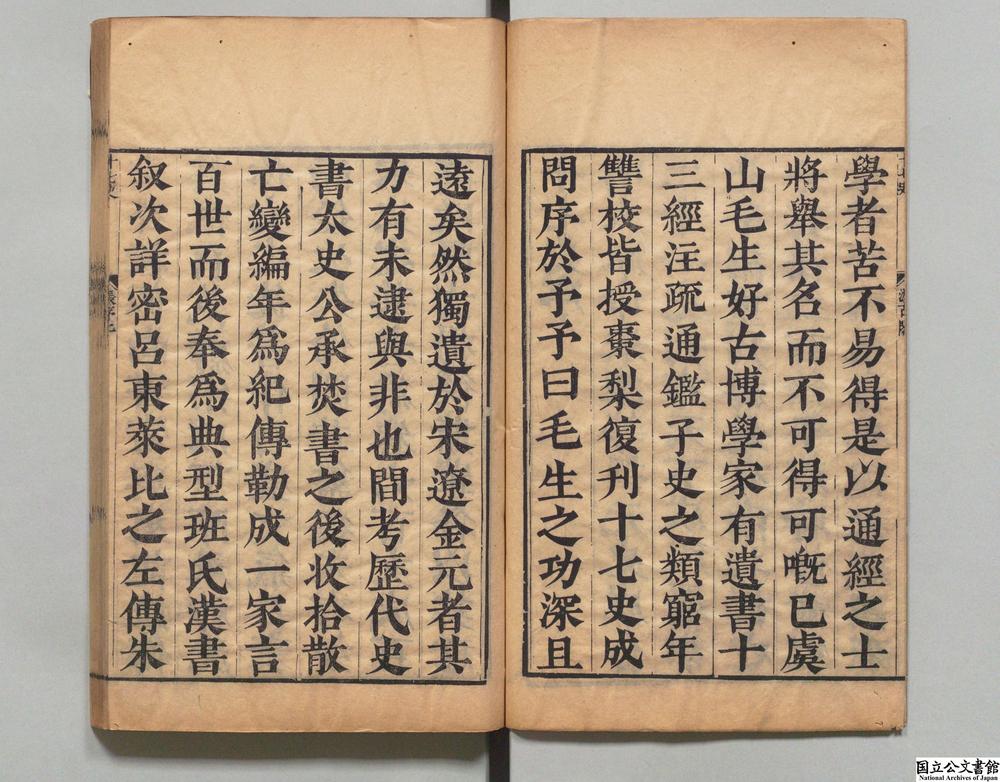 學者苦不易得是以通經之士
將舉其名而不可得可嘅已虞
山毛生好古博學家有遺書十
三經注疏通鑑子史之類窮年
讐校皆授棗梨復刊十七史成
問序於予予曰毛生之功深且
遠矣然獨遺於宋遼金元者其
力有未逮與非也間考歷代史
書太史公承焚書之後收拾散
亡變編年為紀傳勒成一家言
百世而後奉為典型班氏漢書
叙次詳密呂東萊比之左傳朱
国立公文書館
National Archives of Japan